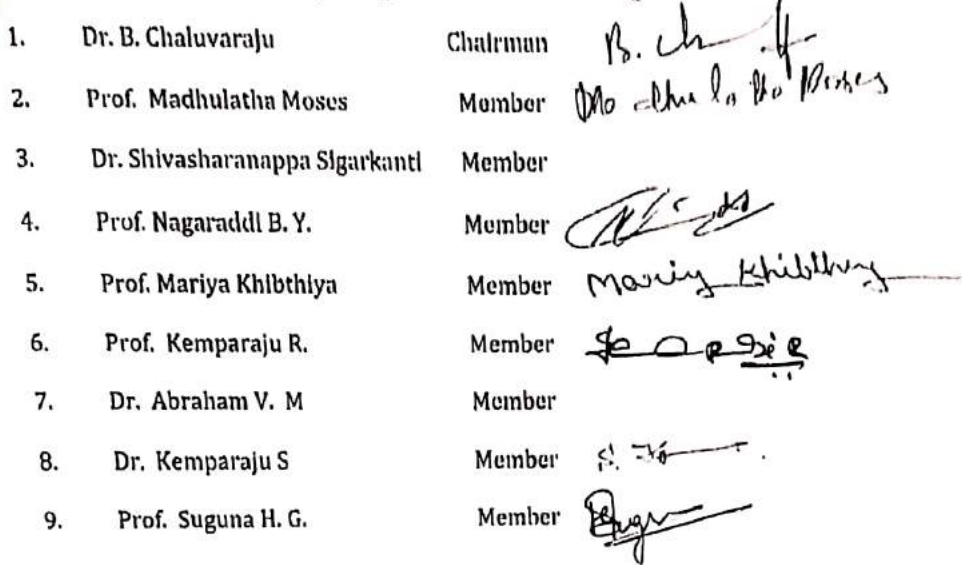 1. Dr. B. Chaluvaraju Chairman B. Ch
2. Prof. Madhulatha Moses Member Madhulatha Moses
3. Dr. Shivasharanappa Sigarkanti Member
4. Prof. Nagaraddi B. Y. Member
5. Prof. Mariya Khibthiya Member Mariy Khibthiy
6. Prof. Kemparaju R. Member
7. Dr. Abraham V. M Member
8. Dr. Kemparaju S Member
9. Prof. Suguna H. G. Member